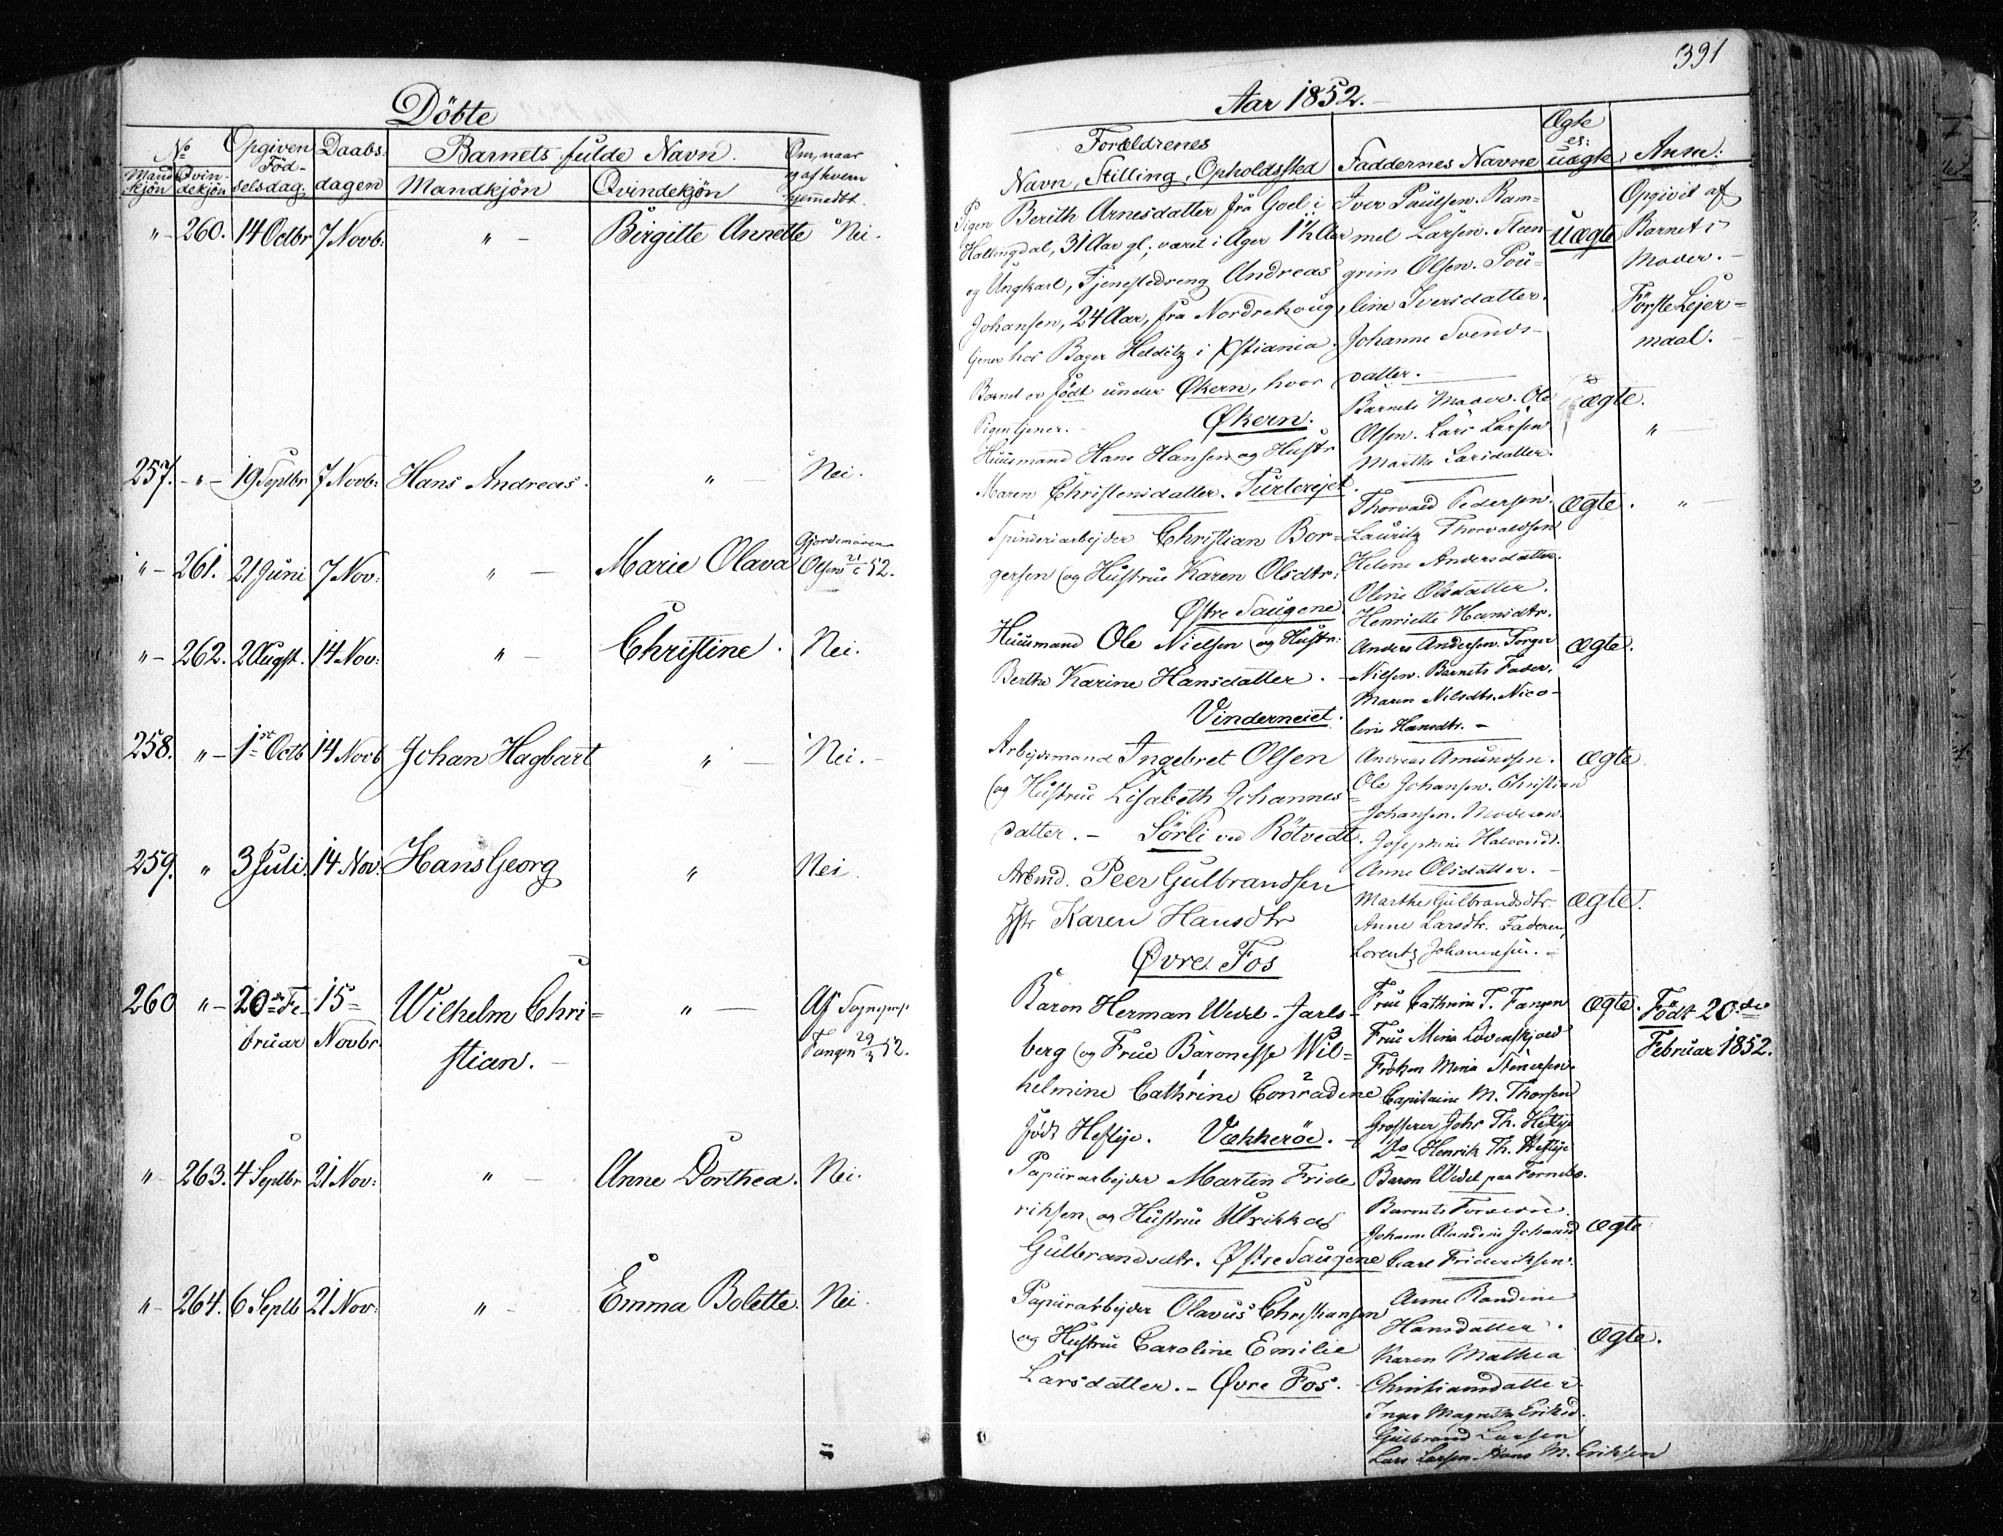 391
Döbte
Aar 1852.
No
Mandkjön
Qvindekjön
Opgiven Födselsdag.
Daabsdagen
Barnets fulde Navn.
Mandkjön
Qvindekjön
Om, naar og af hvem hjemmedöbt.
Forældrenes
Navn, Stilling, Opholdssted
Faddernes Navne
Ægte el: uægte
Anm:
" - 260. 14 Octbr 7 Novb: " - Birgitte Annette Nei.
Pigen Berith Arnesdatter fra Goel i
Hallingdal, 31 Aar gl; været i Ager 1½ Aar
og Ungkarl, Tjenestedreng Andreas
Johansen, 24 Aar, fra Nordrehoug,
tjener hos Bager Helditz i Xstiania.
Barnet er födt under Økern, hvor
Pigen tjener. - Økern.
Iver Paulsen. Ram-
mel Larsen. Steen
grim Olsen. Pou-
line Iversdatter.
Johanne Svends-
datter. -
Uægte
Opgivet af
Barnets
Moder. -
Förste Lejer-
maal.
257. - " - 19 Septbr 7 Novb: Hans Andreas. " - Nei.
Huusmand Hans Hansen og Hustr
Maren Christensdatter. Turterejet.
Barnets Moder. Ole
Olsen. Lars Larsen
Marthe Larsdatter.
ægte.
" -
" - 261. 21 Juni 7 Nov: " - Marie Olava Gjordemoderen Olsen 21/6 52.
Spinderiarbejder Christian Bor-
gersen og Hustrue Karen Olsdtr:
Østre Saugene
Thorvald Pedersen.
Lauritz Thorvaldsen
Helene Andersdatter.
Oline Olsdatter.
Henriette Hansdtr.
ægte.
" -
" - 262. 2 Augst. 14 Nov: " - Christine. Nei.
Huusmand Ole Nielsen og Hustr:
Berthe Karine Hansdatter. -
Vinderneiet.
Anders Andersen. Torger
Nilsen. Barnets Fader.
Maren Nilsdtr. Nico-
line Hansdtr. -
ægte.
258. " - 1st Octb 14 Novb Johan Hagbart " - Nei. -
Arbejdsmand Ingebret Olsen
og Hustrue Lisabeth Johannes-
datter. - Sörli ved Rötvedt.
Andreas Amundsen.
Ole Johansen. Christian
Johansen. Moderen.
Josephine Halvorsd.
Anne Olsdatter. -
ægte
259. " 3 Juli. 14 Nov: Hans Georg " Nei.
Arbmd. Peer Gulbrandsen
Hstr Karen Hansdtr
Øvre Fos
Marthe Gulbrandsdtr.
Anne Larsdtr. Faderen,
Lorentz Johannesen. -
ægte.
260 " - 20de Fe- 15- Wilhelm Chri- " - Af Sogneprst
bruar Novbr. stian. - Fangen 29/3 52.
Baron Herman Wedel-Jarls-
berg og Frue Baronesse Wil-
helmine Cathrine Conradine
födt Heftye. Vækkeröe. -
Frue Cathrine T. Fangen
Frue Mina Lövenskjold
Fröken Mina Stenersen.
Capitaine M. Thorsen
Grosserer Johs Th. Heftye
Do Henrik Th. Heftye
Baron Wedel paa Fornebo.
ægte.
Födt 20de
Februar 1852.
" - 263. 4 Septbr 21 Nov: " - Anne Dorthea. Nei.
Papiirarbejder Martin Fride
riksen og Hustrue Ulrikka
Gulbrandsdtr. Østre Saugene
Barnets Forældre.
Johanne Olandine Johansd
Carl Frideriksen.
ægte
" - 264. 6 Septb 21 Nov: " - Emma Bolette. Nei.
Papiirarbejder Olavus Christiansen
og Hustrue Caroline Emilie
Larsdatter. - Øvre Fos.
Anne Randine
Hansdatter.
Karen Mathea
Christiansdatter
Inger Magrethe Eriksd.
Gulbrand Larsen
Lars Larsen. Hans M. Eriksen
ægte.